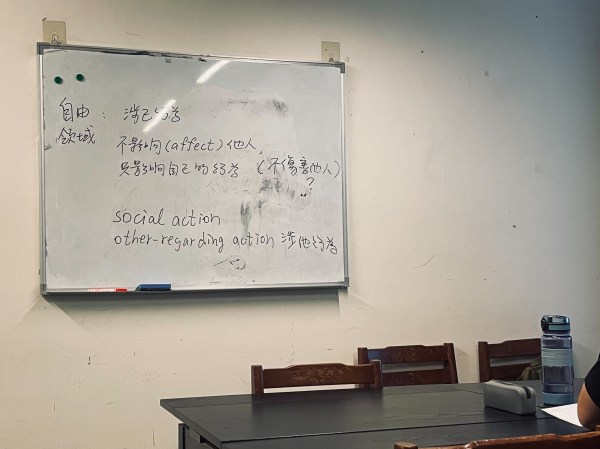 自由 : 涉己行為
領域 不影响(affect)他人,
只影响自己的行為 (不傷害他人)
?
social action
other-regarding action 涉他行為